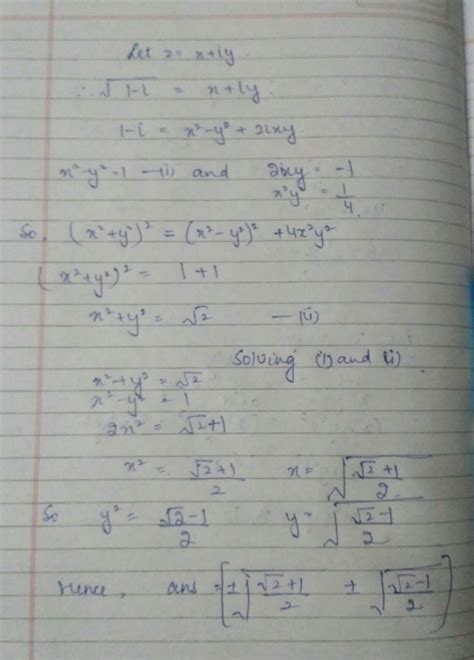 Let z = x+iy
∴ √(1-i) = x+iy
1-i = x²-y²+2ixy
x²-y²=1 —(i) and 2ixy = -1
x²y² = 1/4.
So, (x²+y²)² = (x²-y²)² +4x²y²
(x²+y²)² = 1+1
x²+y² = √2 —(ii)
Solving (i) and (ii).
x²+y² = √2
x²-y² = 1
2x² = √2+1
x² = (√2+1)/2 x = √((√2+1)/2)
So y² = (√2-1)/2 y = √((√2-1)/2)
Hence, ans = [±√((√2+1)/2) ± √((√2-1)/2)]